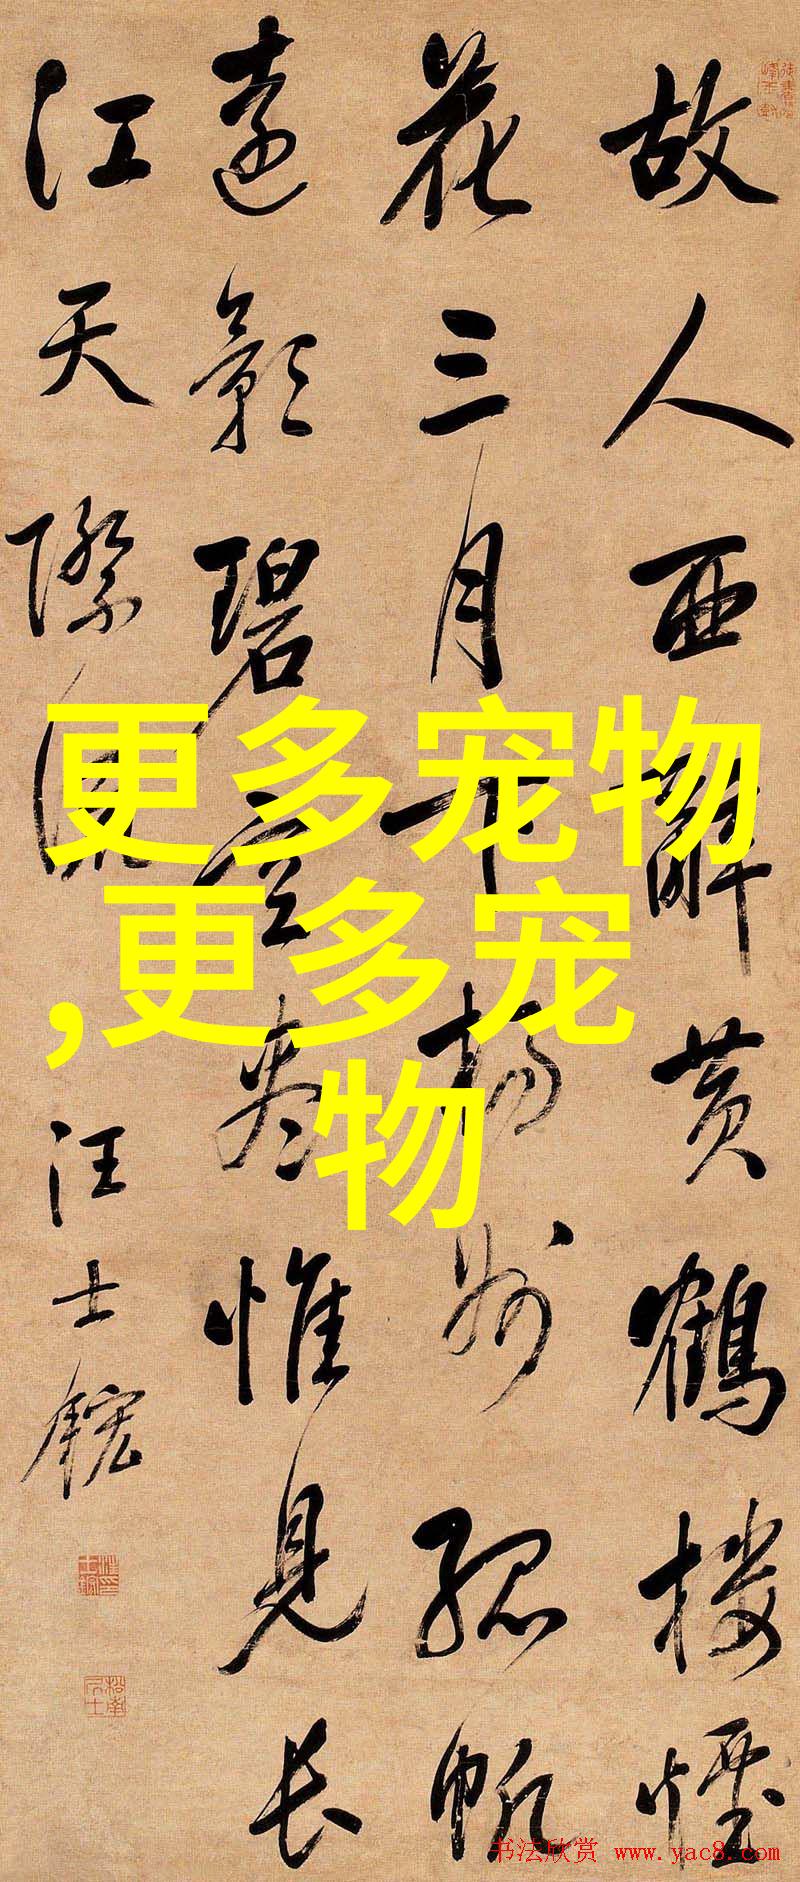 故人西辭黃鶴樓煙
花三月下揚州孤帆
遠影碧空盡惟見長
江天際流
汪士鋐
更多宠物
,更多宠
物
书法欣赏 www.yac8.com